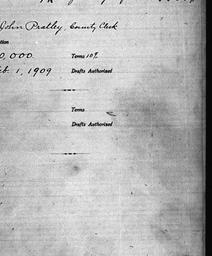 John Pratley, County Clerk
tion
0,000 Terms 10%
Feb. 1, 1909 Drafts Authorized
Terms
Drafts Authorized